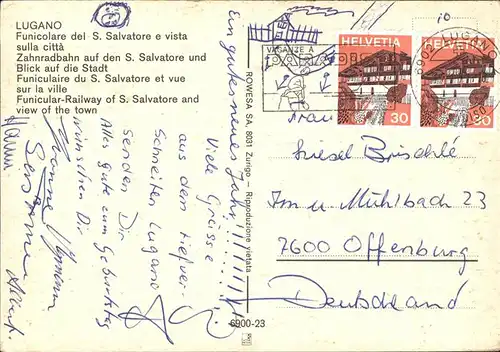 LUGANO
Funicolare del S. Salvatore e vista
sulla città
Zahnradbahn auf den S. Salvatore und
Blick auf die Stadt
Funiculaire du S. Salvatore et vue
sur la ville
Funicular-Railway of S. Salvatore and
view of the town
Ein gutes neues Jahr!!!!!!
Viele Grüsse
aus dem tiefver-
schneiten Lugano
senden Dir
Alles gute zum Geburtstag
wünschen Dir
ROWESA SA, 8031 Zurigo — Riproduzione vietata
6900-23
VACANZE A
6902 LUGANO
HELVETIA
30
HELVETIA
30
Frau
Liesel Brüschle
Im u. Mühlbach 23
7600 Offenburg
Deutschland